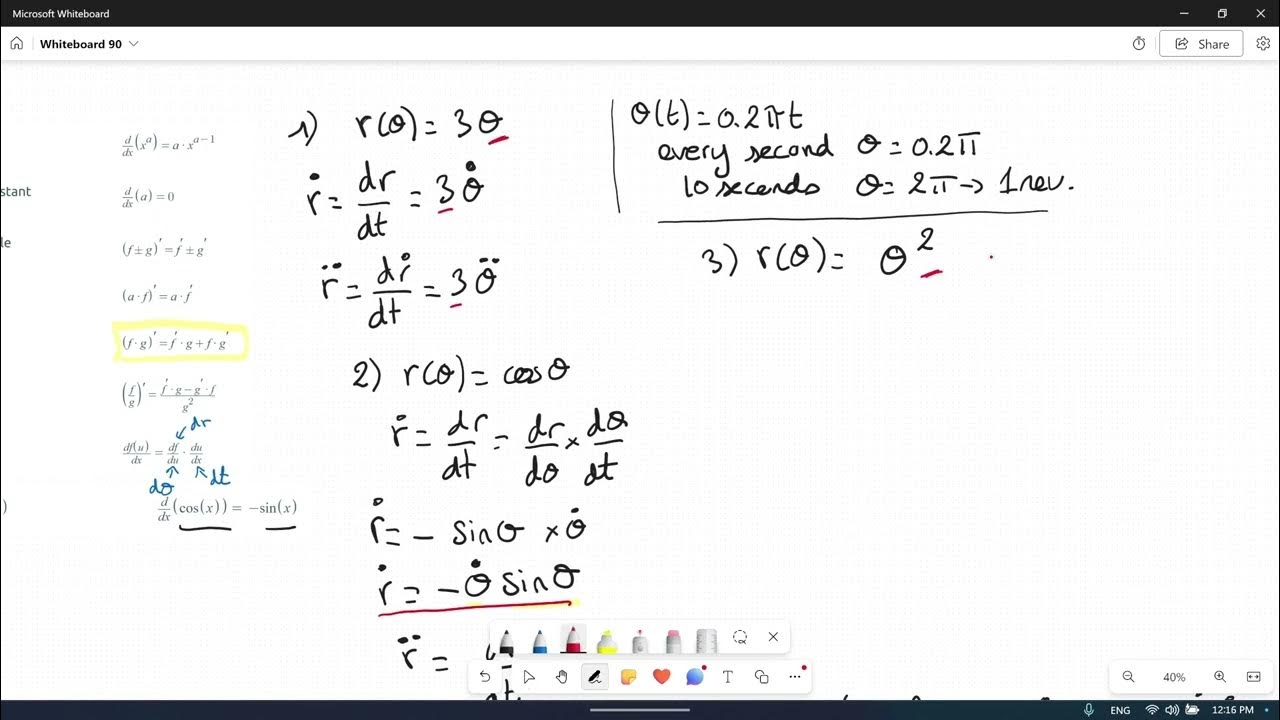 Microsoft Whiteboard
Whiteboard 90
Share
stant
le
)
d/dx (x^a) = a · x^(a−1)
d/dx (a) = 0
(f ± g)' = f' ± g'
(a · f)' = a · f'
(f · g)' = f' · g + f · g'
(f/g)' = (f' · g − g' · f)/g²
dr
df(u)/dx = df/du · du/dx
dθ
dt
d/dx (cos(x)) = −sin(x)
1) r(θ) = 3θ
ṙ = dr/dt = 3θ̇
r̈ = dṙ/dt = 3θ̈
2) r(θ) = cosθ
ṙ = dr/dt = dr/dθ × dθ/dt
ṙ = − sinθ × θ̇
ṙ = −θ̇ sinθ
r̈ =
θ(t) = 0.2πt
every second θ = 0.2π
10 seconds θ = 2π → 1 rev.
3) r(θ) = θ²
T
40%
ENG
12:16 PM